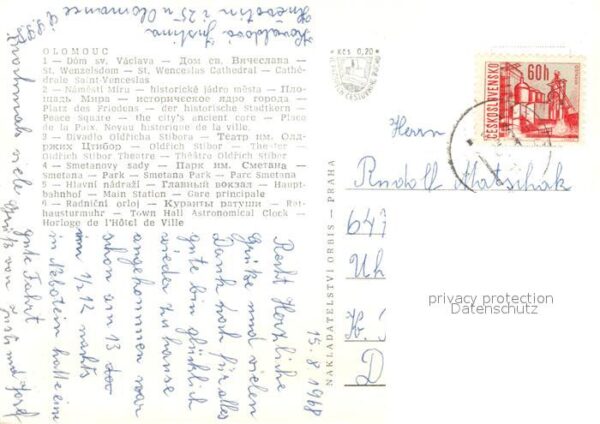 Kovaldova Justina
Hněvotín č 25 u Olomouce
ČSSR
OLOMOUC
1 — Dóm sv. Václava — Дом св. Вячеслава —
St. Wenzelsdom — St. Wenceslas Cathedral — Cathé-
drale Saint-Venceslas
2 — Náměstí Míru — historické jádro města — Пло-
щадь Мира — историческое ядро города —
Platz des Friedens — der historische Stadtkern —
Peace Square — the city's ancient core — Place
de la Paix. Noyau historique de la ville.
3 — Divadlo Oldřicha Stibora — Театр им. Олд-
ржих Цтибор — Oldřich Stibor — Theater
Oldřich Stibor Theatre — Théâtre Oldřich Stibor
4 — Smetanovy sady — Парк им. Сметана —
Smetana — Park — Smetana Park — Parc Smetana
5 — Hlavní nádraží — Главный вокзал — Haupt-
bahnhof — Main Station — Gare principale
6 — Radniční orloj — Куранты ратуши — Rat-
hausturmuhr — Town Hall Astronomical Clock —
Horloge de l'Hôtel de Ville
15. 8 1968
Recht Herzliche
Grüße und vielen
Dank noch für alles
gute bin glücklich
wieder zu hause
angekommen war
schon am 13
um 1/2 12 nachts
in Nebotein hatte eine
gute Fahrt
nochmals viele
Grüße von Justi und Josef
NAKLADATELSTVÍ ORBIS — PRAHA
Kčs 0,20
60h
ČESKOSLOVENSKO
Herrn
Rudolf Matschak
647
Uh
K.
D
privacy protection
Datenschutz